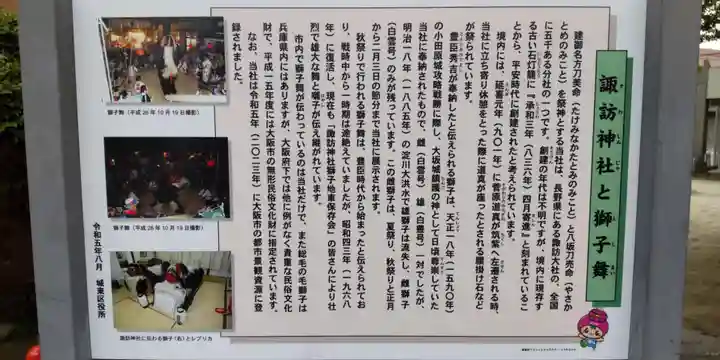 諏訪神社と獅子舞
すわじんじゃ
ししまい
建御名方刀美命（たけみなかたとみのみこと）と八坂刀売命（やさか
とめのみこと）を祭神とする当社は、長野県にある諏訪大社の、全国
に五千ある分社の一つです。創建の年代は不明ですが、境内に現存す
る古い石灯籠に『承和三年（八三六年）四月寄進』と刻まれているこ
とから、平安時代に創建されたと考えられています。
境内には、延喜元年（九〇一年）に菅原道真が筑紫へ左遷される時、
当社に立ち寄り休憩をとった際に道真が座ったとされる腰掛け石など
が祭られています。
豊臣秀吉が奉納したと伝えられる獅子は、天正一八年（一五九〇年）
の小田原城攻略戦勝に際し、大坂城鎮護の神として日頃尊崇していた
当社に奉納されたもので、雌（白雲号）雄（白豊号）一対でしたが、
明治一八年（一八八五年）の淀川大洪水で雄獅子は流失し、雌獅子
（白雲号）のみが残っています。この雌獅子は、夏祭り、秋祭りと正月
から二月三日の節分まで当社に展示されます。
秋祭りで行われる獅子舞は、豊臣時代から始まったと伝えられてお
り、戦時中から一時期は途絶えていましたが、昭和四三年（一九六八
年）に復活し、現在も「諏訪神社獅子地車保存会」の皆さんにより壮
烈で雄大な舞と囃子が伝え継がれています。
市内で獅子舞が伝わっているのは当社だけで、また総毛の毛獅子は
兵庫県内にはありますが、大阪府下では他に例がなく貴重な民俗文化
財で、平成一五年度には大阪市の無形民俗文化財に指定されています。
なお、当社は令和五年（二〇二三年）に大阪市の都市景観資源に登
録されました。
令和五年八月　城東区役所
獅子舞（平成26年10月19日撮影）
獅子舞（平成26年10月19日撮影）
諏訪神社に伝わる獅子（右）とレプリカ